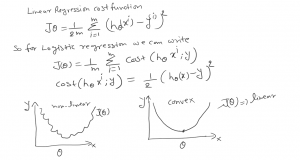 Linear Regression cost function
Jθ = 1/2m Σ_{i=1}^{m} (hθ(x^i) - y^i)^2
So for Logistic regression we can write
J(θ) = 1/m Σ_{i=1}^{m} cost(hθx^i; y)
cost(hθx^i; y) = 1/2 (hθ(x) - y)^2
y non-linear J(θ)
θ x
y convex J(θ) => linear
θ x